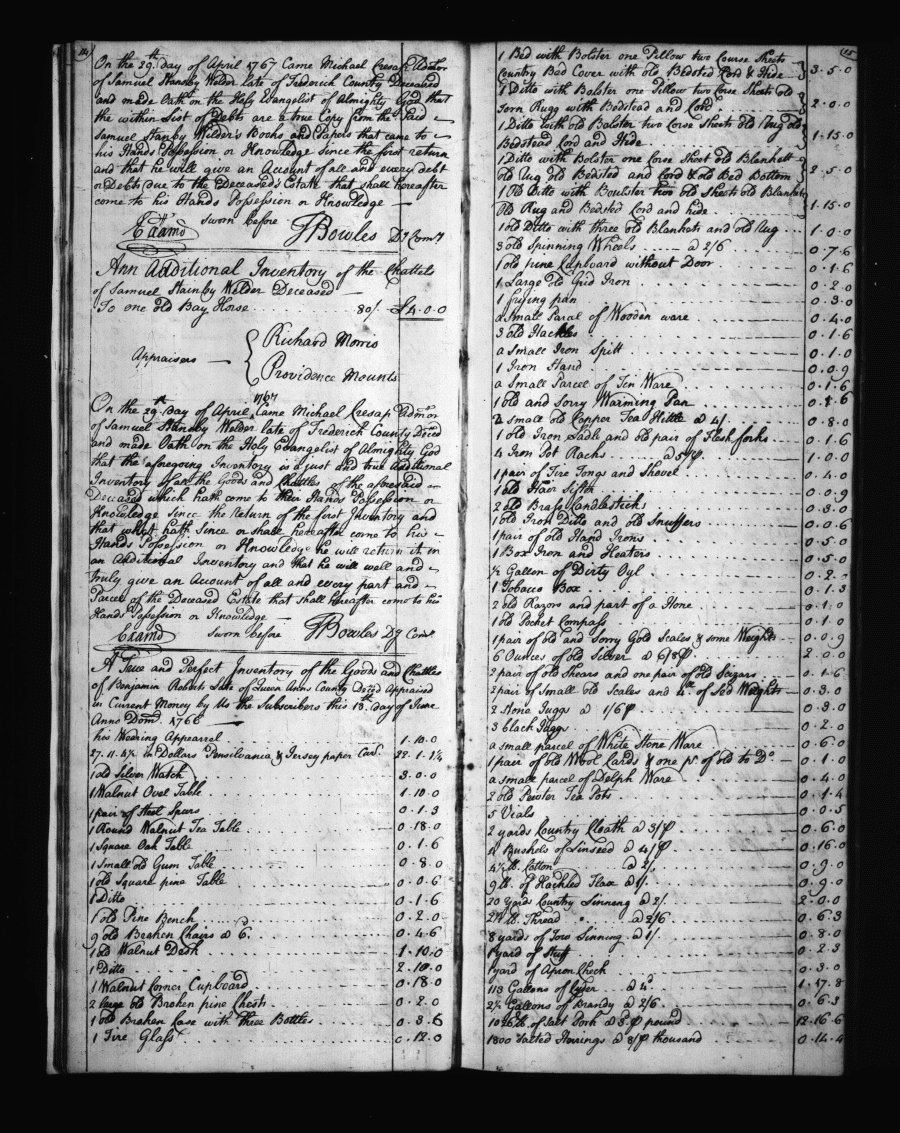 On the 29th day of April 1767 Came Michael Cresap Admor
of Samuel Stansby Welder late of Frederick County Deceased
and made Oath on the Holy Evangelist of Almighty God that
the within List of Debts are a true Copy from the Said
Samuel Stanby Wilder's Books and Papers that came to
his Hands Possession or Knowledge Since the first return
and that he will give an Account of all and every debt
or Debts due to the Deceased's Estate that shall hereafter
come to his Hands Possession or Knowledge
Examd Sworn before JBowles Dy Comry
Ann Additional Inventory of the Chattels
of Samuel Stainby Welder Deceased
To one old Bay Horse 80/ £4.0.0
Appraisers
Richard Morris
Providence Mounts
1767
On the 29th day of April Came Michael Cresap Admon
of Samuel Stansby Welder late of Frederick County Deced
and made Oath on the Holy Evangelist of Almighty God
that the aforegoing Inventory is a just and true additional
Inventory of all the Goods and Chattles of the aforesaid
Deceased which hath come to their Hands Possession or
Knowledge Since the Return of the first Inventory and
that what hath Since or shall hereafter come to his
Hands Possession or Knowledge he will return it in
an Additional Inventory and that he will well and
truly give an Account of all and every part and
Parcel of the Deceased Estate that shall hereafter come to his
Hands Possession or Knowledge
Examd Sworn before JBowles Dy Comr
A True and Perfect Inventory of the Goods and Chattles
of Benjamin Roberts Late of Queen Anns County Decd Appraised
in Current Money by Us the Subscribers this 18th day of June
Anno Domi 1766
his Wearing Appearrel 1.10.0
27.11.4½ in Dollars Pensilvania & Jersey paper Cury 22.1.1¼
1 old Silver Watch 3.0.0
1 Walnut Ovel Table 1.10.0
1 pair of Steel Spurs 0.1.3
1 Round Walnut Tea Table 0.18.0
1 Square Oak Table 0.1.6
1 Small old Gum Table 0.8.0
1 old Square pine Table 0.0.6
1 Ditto 0.1.6
1 old Pine Bench 0.2.0
9 old Broken Chairs @ 6. 0.4.6
1 old Walnut Desk 1.10.0
1 Ditto 2.10.0
1 Walnut Corner Cupboard 0.18.0
2 large old Broken pine Chests 0.2.0
1 old Broken Case with Three Bottles 0.3.6
1 Fire Glass 0.12.0
1 Bed with Bolster one Pillow two Course Sheets
Country Bed Cover with old Bedsted Cord & Hide 3.5.0
1 Ditto with Bolster one Pillow two Corse Sheets Old
Torn Rugg with Bedstead and Cord 2.0.0
1 Ditto with old Bolster two Corse Sheets old Rug old
Bedstead Cord and Hide 1.15.0
1 Ditto with Bolster one Corse Sheet old Blankett
old Rug old Bedsted and Cord & old Bed Bottom 2.5.0
1 Old Ditto with Boulster two old Sheets old Blanket
Old Rug and Bedsted Cord and hide 1.15.0
1 old Ditto with three old Blankets and old Rug 1.0.0
3 old Spinning Wheels @ 2/6 0.7.6
1 old pine Cupboard without Door 0.1.6
1 Large old Grid Iron 0.2.0
1 frying pan 0.3.0
a Small Parcel of Wooden ware 0.4.0
3 old Hackles 0.1.6
a Small Iron Spitt 0.1.0
1 Iron Stand 0.0.9
a Small Parcel of Tin Ware 0.1.6
1 old and Sorry Warming Pan 0.1.6
2 Small old Copper Tea Kettle @ 4/ 0.8.0
1 old Iron Ladle and old pair of Flesh forks 0.1.6
4 Iron Pot Racks @ 5/ 1.0.0
1 pair of Fire Tongs and Shovel 0.4.0
1 old Hair Sifter 0.0.9
2 old Brass Candlesticks 0.3.0
1 old Iron Ditto and old Snuffers 0.0.6
1 pair of old Hand Irons 0.5.0
1 Box Iron and Heaters 0.5.0
½ Gallon of Dirty Oyl 0.2.0
1 Tobacco Box 0.1.3
2 old Razors and part of a Hone 0.1.0
1 old Pocket Compass 0.1.0
1 pair of old and sorry Gold Scales & some Weights 0.0.9
6 Ounces of old Silver @ 6/8 2.0.0
2 pair of old Shears and one pair of old Scizars 0.1.6
2 pair of Small old Scales and 4lb of Led Weights 0.3.0
2 Stone Juggs @ 1/6 0.3.0
3 black Juggs 0.2.0
a small parcel of White Stone Ware 0.6.0
1 pair of old Wool Cards & one pr of old to Do 0.1.0
a small parcel of Delph Ware 0.4.0
2 old Pewter Tea Pots 0.1.4
5 Vials 0.0.5
2 yards Country Cloath @ 3/ 0.6.0
4 Bushels of Linseed @ 4/ 0.16.0
4½ lb. Cotton @ 2/ 0.9.0
9 lb. of Hackled Flax @ 1/. 0.9.0
20 Yard Country Linning @ 2/. 2.0.0
2½ lb. Thread @ 2/6. 0.6.3
8 yards of Tow Linning @ 1/ 0.8.0
1 yard of Stuff 0.2.3
1 yard of Apron Check 0.3.0
113 Gallons of Cyder @ 4d 1.17.8
2½ Gallons of Brandy @ 2/6. 0.6.3
lb. of Salt Pork @ 3. pound 12.16.6
1800 Salted Herrings @ 8/ thousand 0.14.4